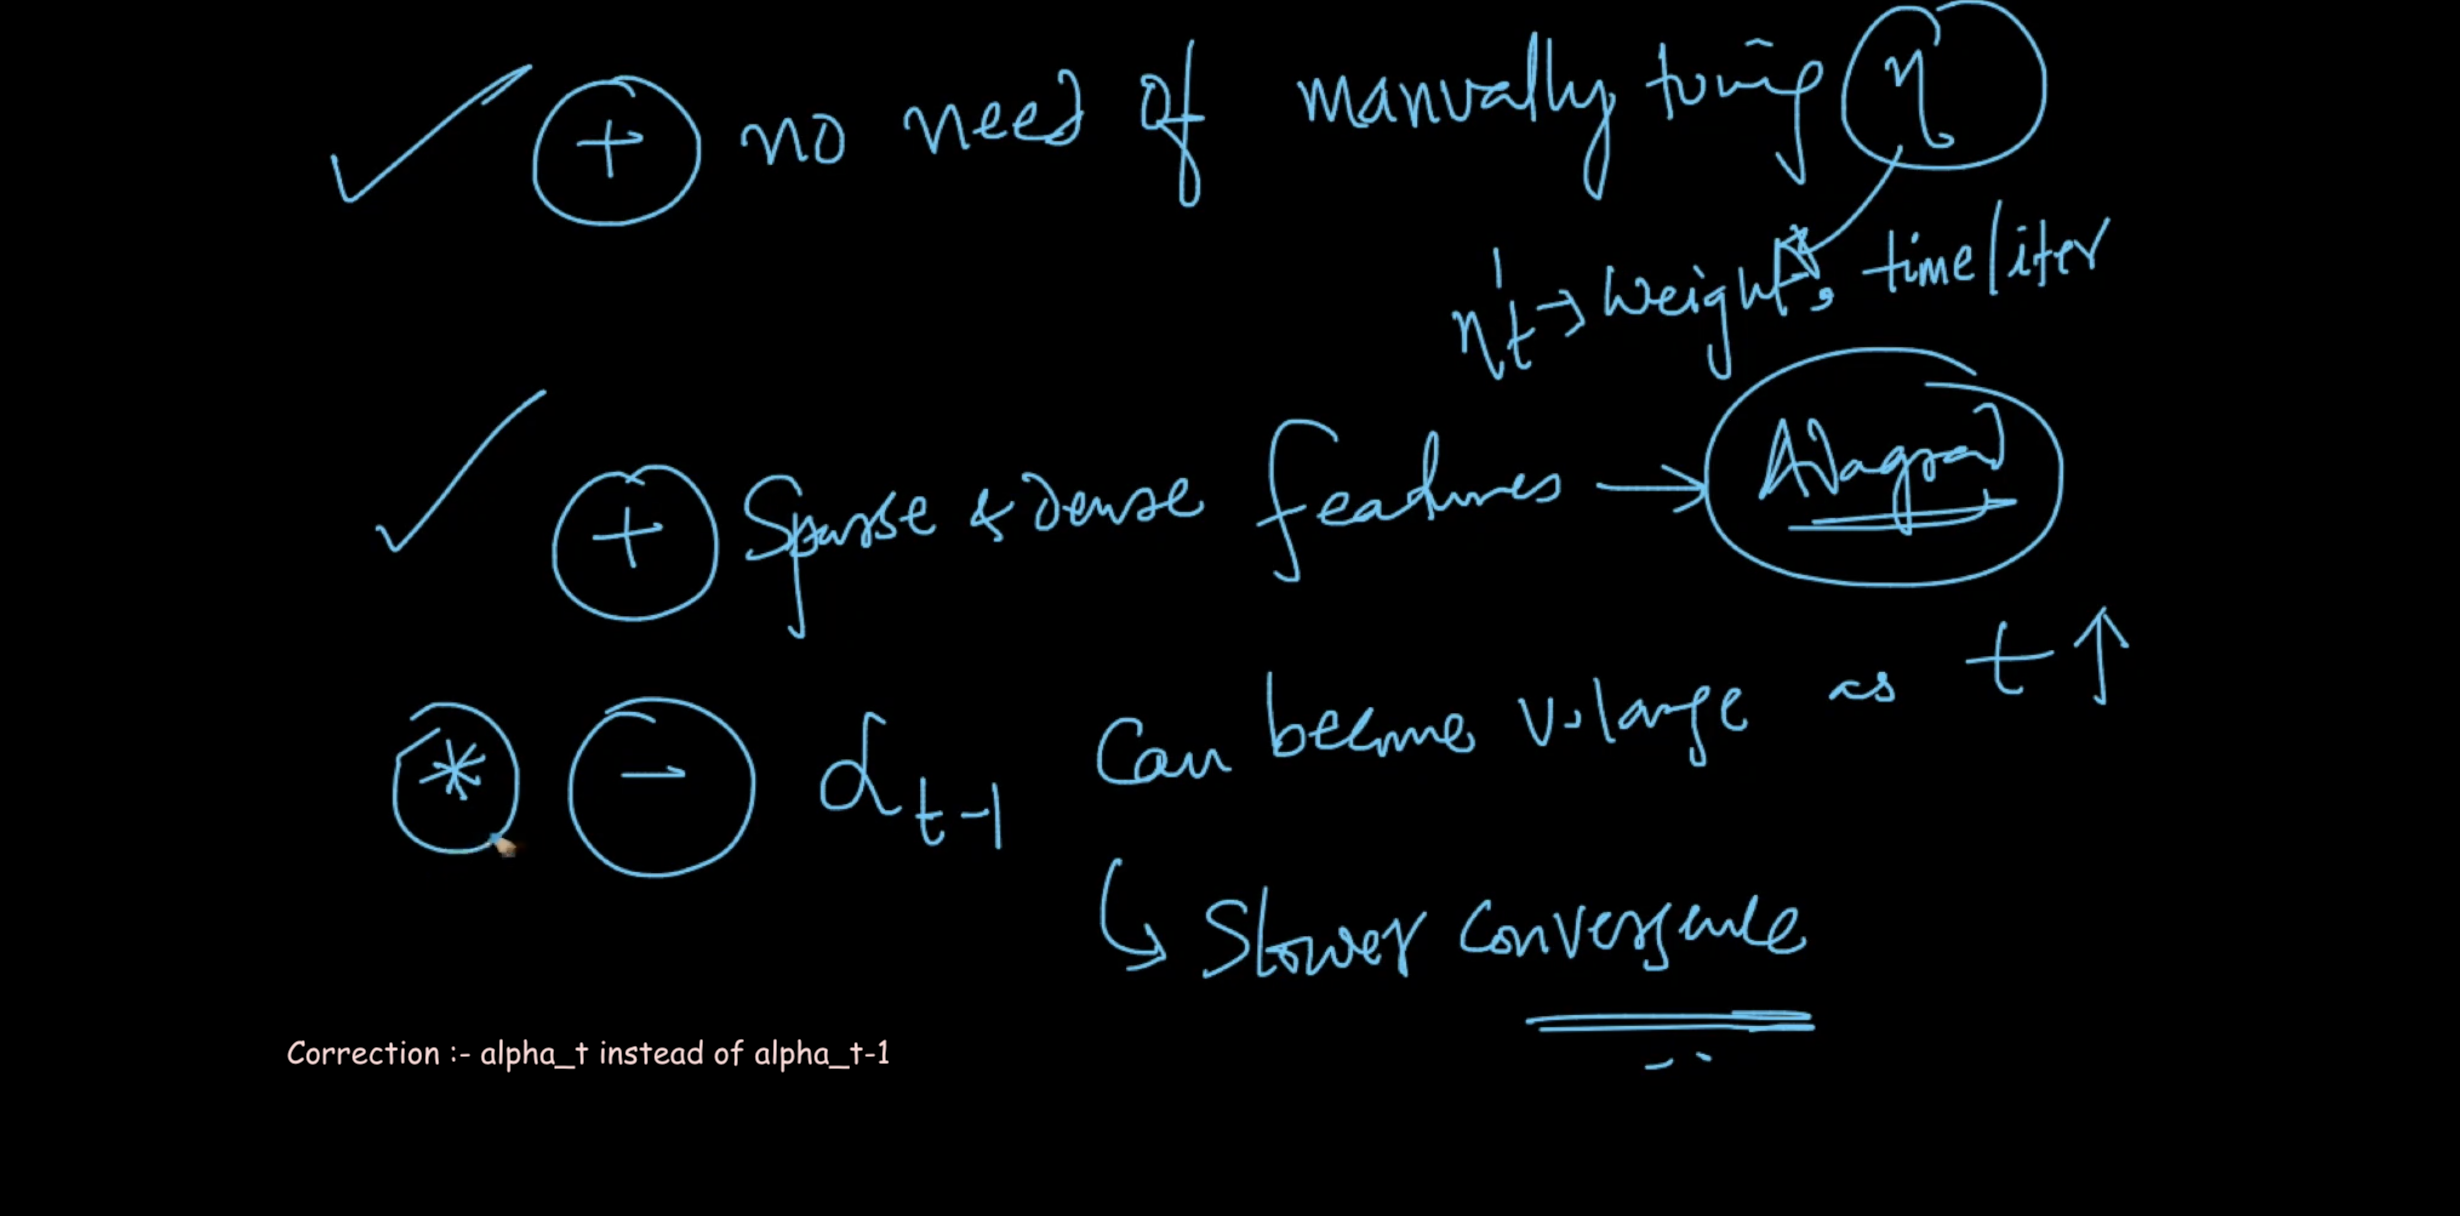 + no need of manually tuning η
η't → weight, time/iter
+ Sparse & Dense features → Adagrad
* - αt-1 can become v.large as t ↑
↳ Slower convergence
Correction :- alpha_t instead of alpha_t-1